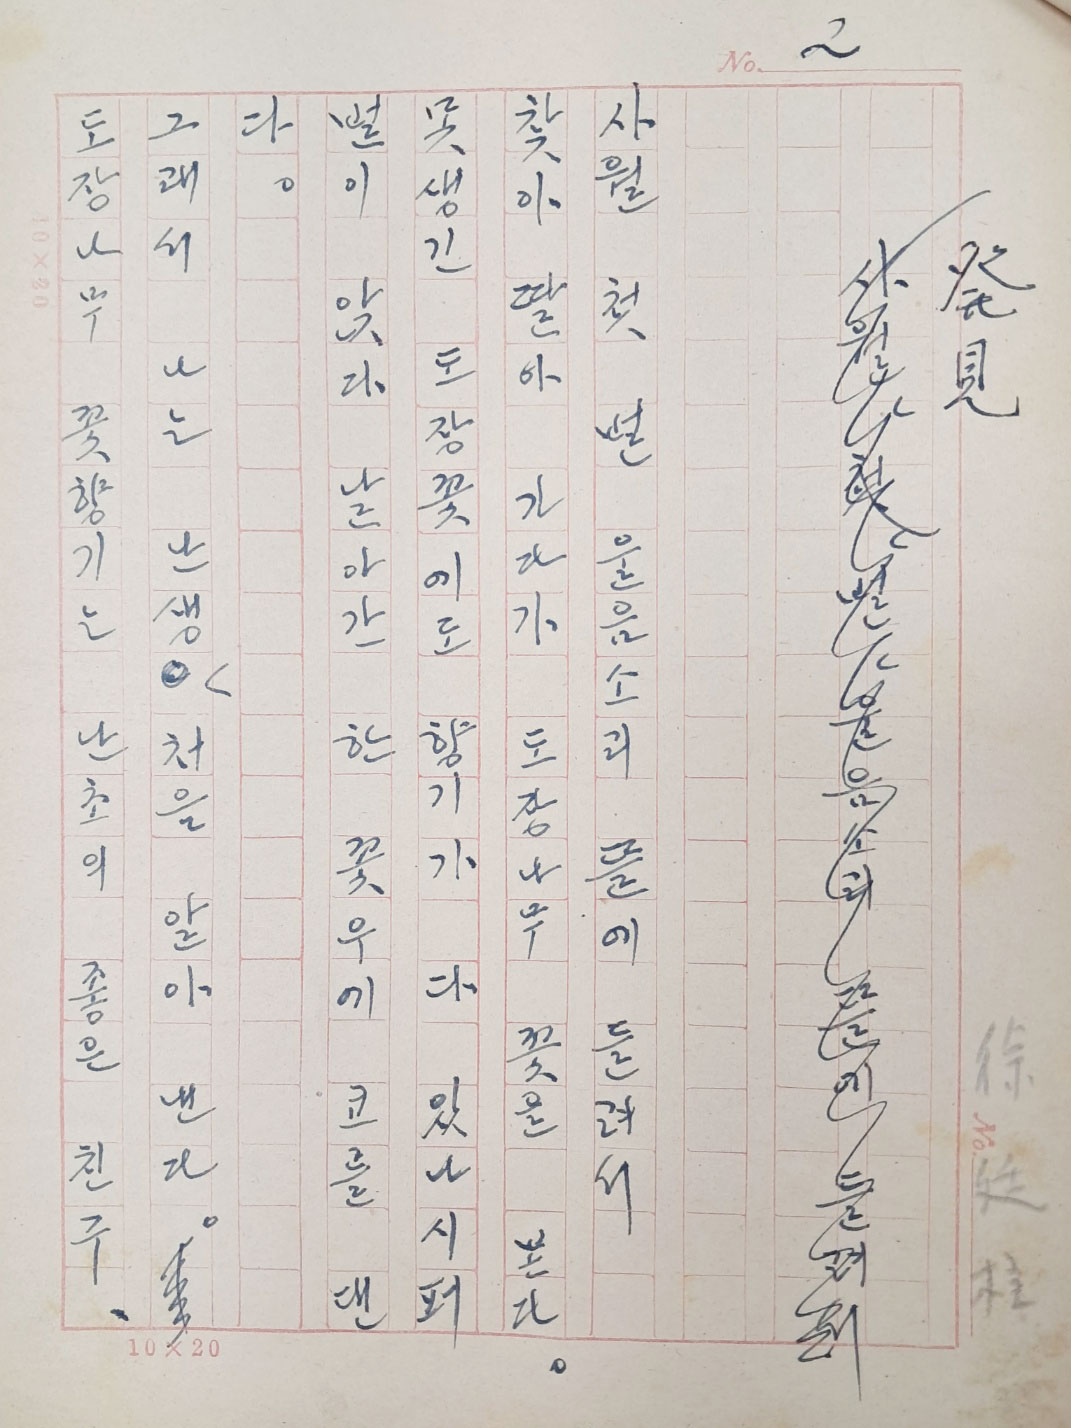 No. 2
発見
사월 첫 벌 울음소리 뜰에 들려
사월 첫 벌 울음소리 뜰에 들려서
찾아 딸아 가다가 도장나무 꽃을 본다。
못생긴 도장꽃에도 향기가 다 있나 시퍼
벌이 앉다 날아간 한 꽃우에 코를 댄
다。
그래서 나는 난생 처음 알아 낸다。
도장나무 꽃향기는 난초의 좋은 친구、
徐廷柱
No.
10×20
10×20